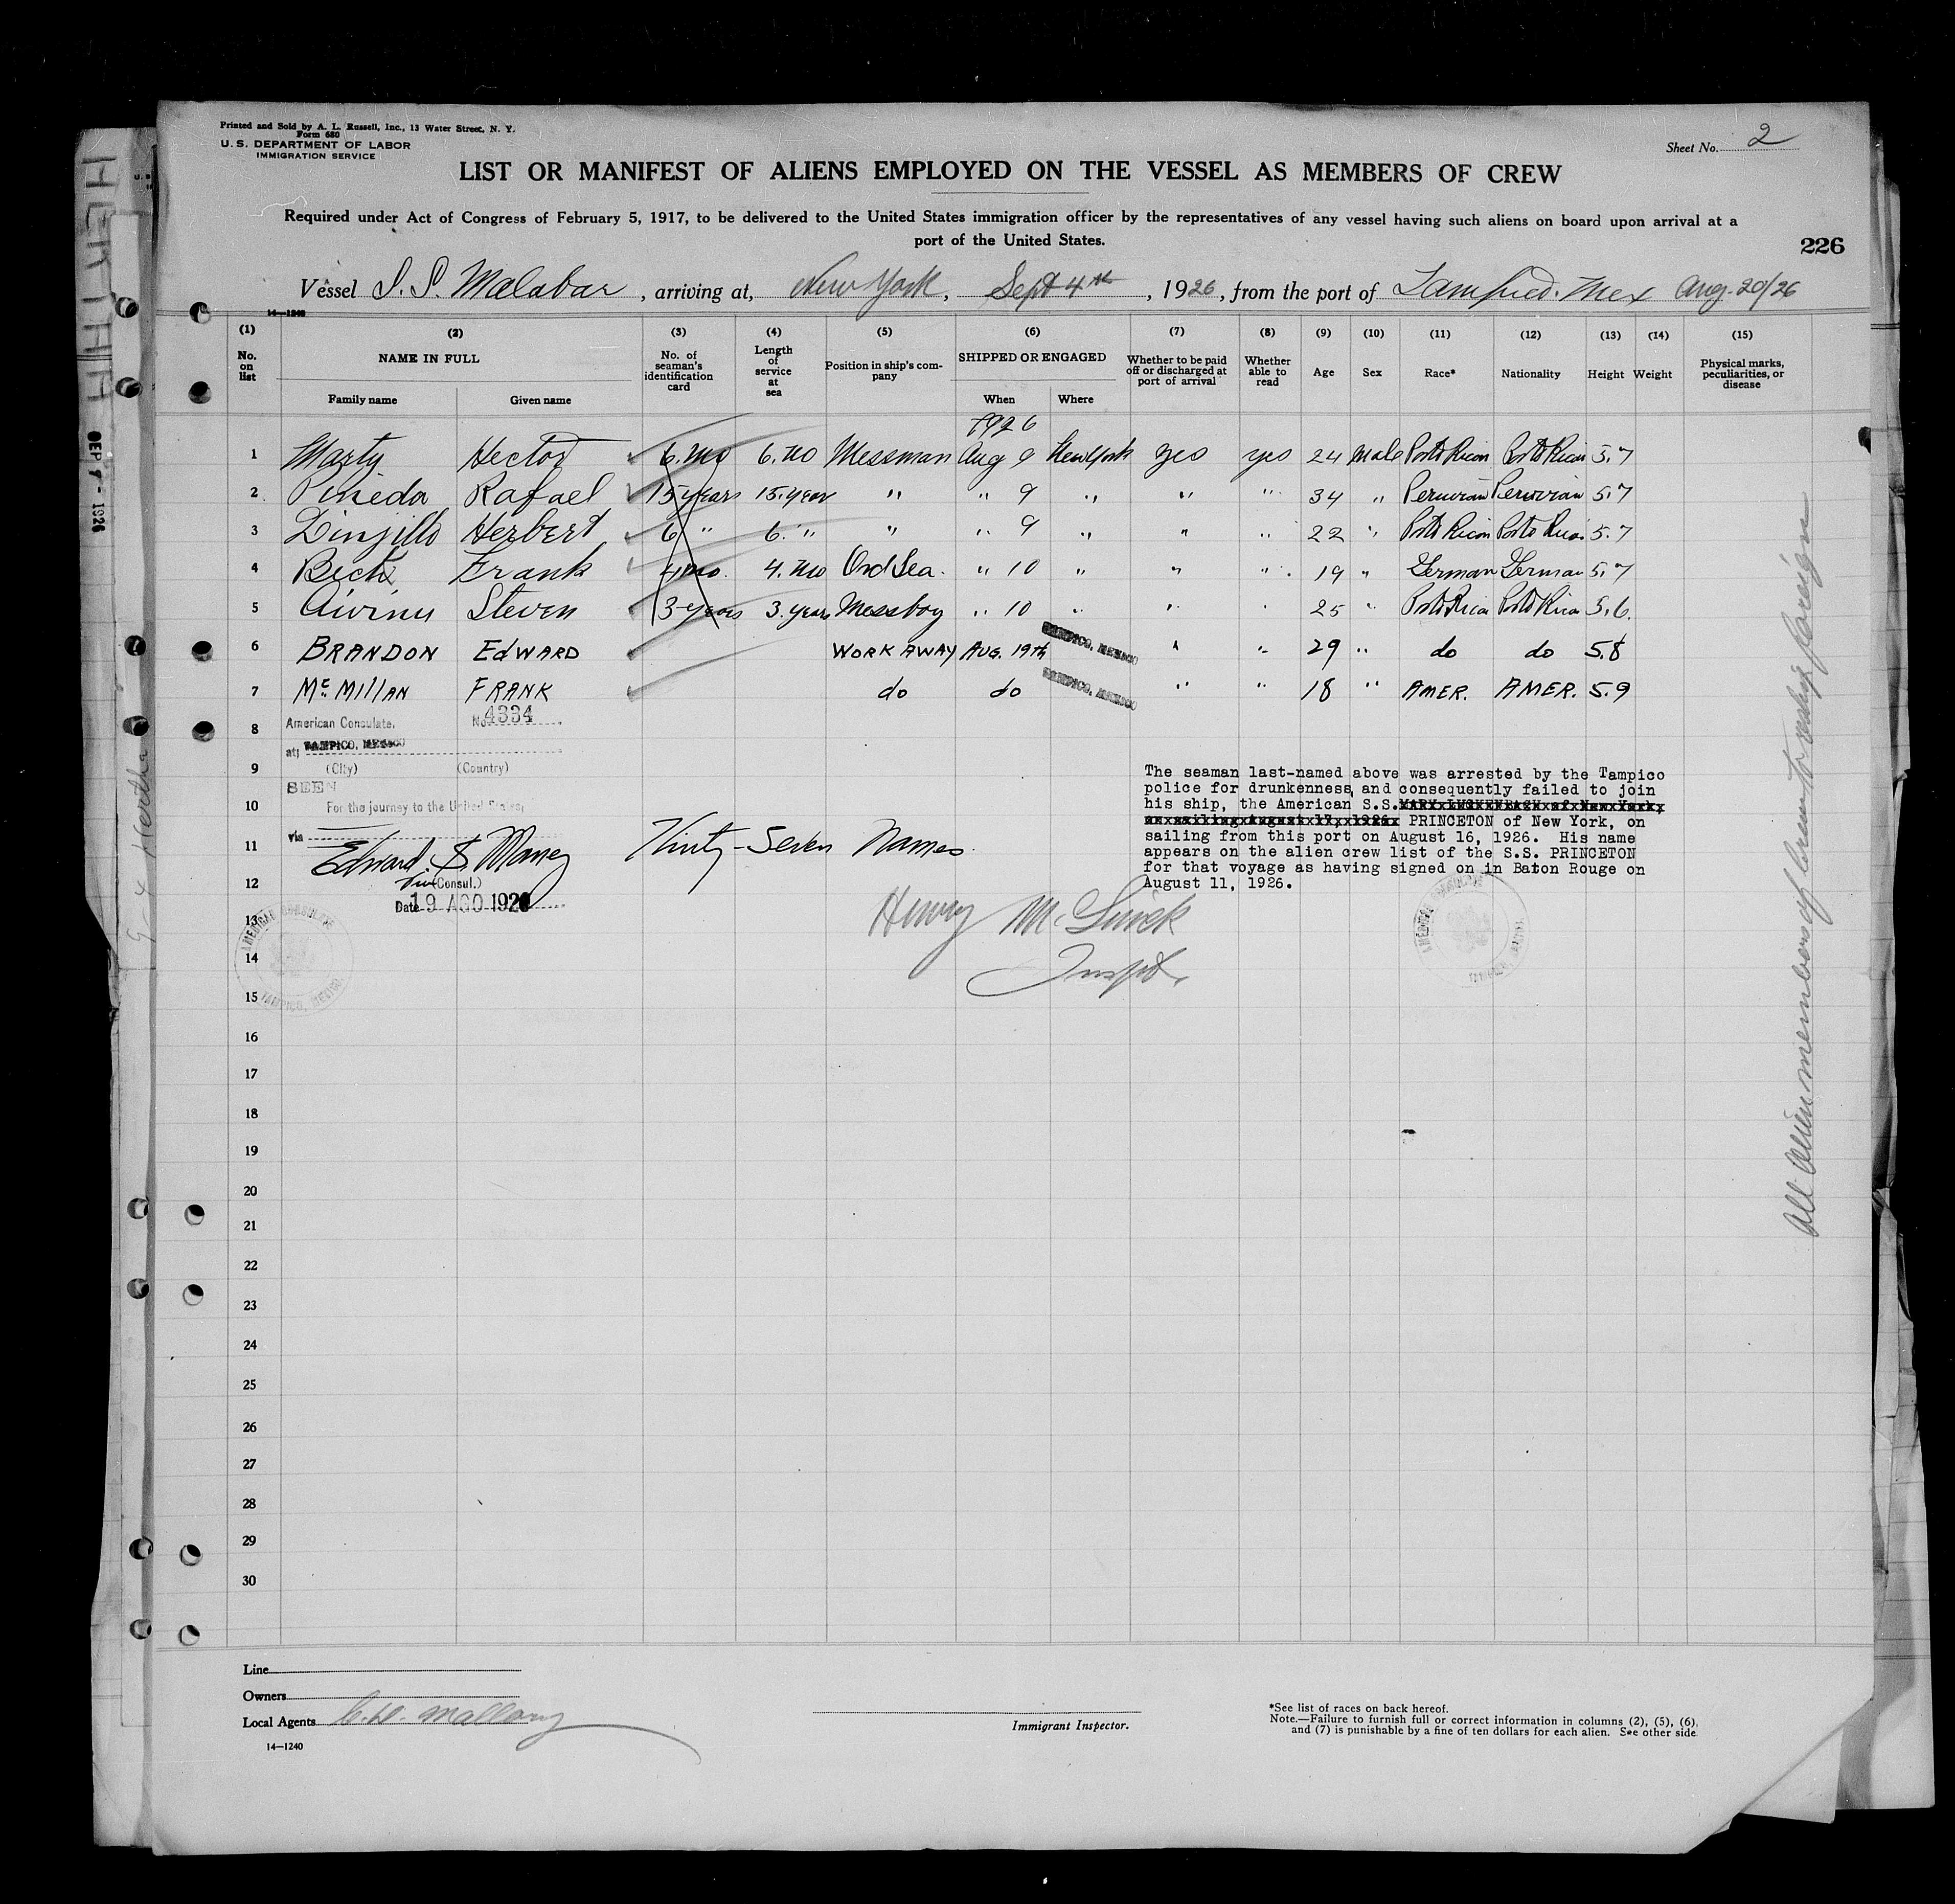 Printed and Sold by A. L. Russell, Inc., 13 Water Street, N. Y.
Form 680
U. S. DEPARTMENT OF LABOR
IMMIGRATION SERVICE
Sheet No. 2
LIST OR MANIFEST OF ALIENS EMPLOYED ON THE VESSEL AS MEMBERS OF CREW
Required under Act of Congress of February 5, 1917, to be delivered to the United States immigration officer by the representatives of any vessel having such aliens on board upon arrival at a
port of the United States.
226
Vessel S. S. Malabar, arriving at, New York, Sept 4th, 1926, from the port of Tampico. Mex Aug. 20/26
14—1240
(1) (2) (3) (4) (5) (6) (7) (8) (9) (10) (11) (12) (13) (14) (15)
No. on list NAME IN FULL Family name Given name No. of seaman's identification card Length of service at sea Position in ship's company SHIPPED OR ENGAGED When Where Whether to be paid off or discharged at port of arrival Whether able to read Age Sex Race* Nationality Height Weight Physical marks, peculiarities, or disease
1926
1 Marty Hector 6. Mo 6. Mo Messman Aug 9 New York Yes yes 24 Male Porto Rican Porto Rican 5.7
2 Pineda Rafael 15 years 15. year " " 9 " " " 34 " Peruvian Peruvian 5.7
3 Herbert 6 " 6. " " " 9 " " " 22 " Porto Rican Porto Rican 5.7
4 Beck Frank 4 mo. 4. Mo Ord Sea. " 10 " " " 19 " German German 5.7
5 Steven 3 years 3. years Messboy " 10 " " " 25 " Porto Rica Porto Rica 5.6.
6 BRANDON EdWARD WORK AWAY AUG. 19th TAMPICO, MEXICO " " 29 " do do 5.8
7 Mc MillAN FRANK do do TAMPICO, MEXICO " " 18 " AMER. AMER. 5.9
8 American Consulate, No. 4334
at; TAMPICO, MEXICO
9 (City) (Country)
SEEN
10 For the journey to the United States,
via
11 Edward S Maney Thirty-Seven Names.
12 Vice (Consul.)
Date 19 AGO 1926
The seaman last-named above was arrested by the Tampico
police for drunkenness, and consequently failed to join
his ship, the American S.S. MARY LUCKENBACH of New York,
on sailing August 17, 1926 PRINCETON of New York, on
sailing from this port on August 16, 1926. His name
appears on the alien crew list of the S.S. PRINCETON
for that voyage as having signed on in Baton Rouge on
August 11, 1926.
Henry
Inspt.
AMERICAN CONSULATE
TAMPICO, MEXICO
AMERICAN CONSULATE
TAMPICO, MEXICO
13
14
15
16
17
18
19
20
21
22
23
24
25
26
27
28
29
30
All alien members of crew to reship foreign
Line
Owners
Local Agents C. D. Mallory
14—1240
Immigrant Inspector.
*See list of races on back hereof.
Note.—Failure to furnish full or correct information in columns (2), (5), (6),
and (7) is punishable by a fine of ten dollars for each alien. See other side
HERTHA
SEP 7 - 1926
9-4 Hertha